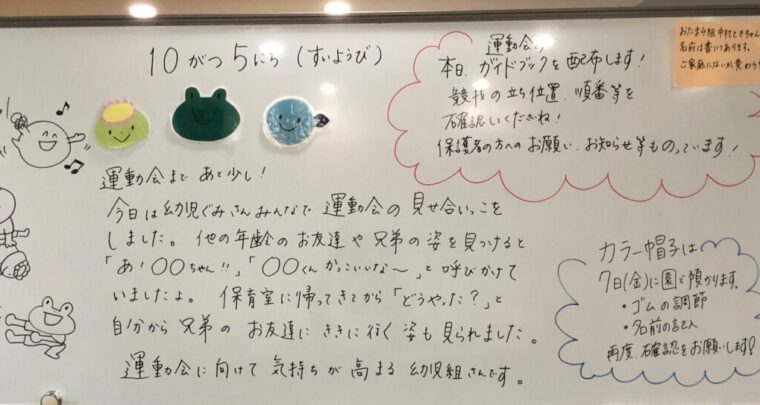 10がつ5にち(すいようび)
運動会まであと少し!
今日は幼児ぐみさんみんなで運動会の見せ合いっこを
しました。他の年齢のお友達や兄弟の姿を見つけると
「あ!〇〇ちゃん!!」「〇〇くんかっこいいな〜」と呼びかけて
いましたよ。保育室に帰ってきてから「どうやった?」と
自分から兄弟のお友達にききに行く姿も見られました。
運動会に向けて気持ちが高まる幼児組さんです。
運動会の
本日、ガイドブックを配布します!
競技の立ち位置、順番等を
確認してくださいね!
保護者の方へのお願い、お知らせ等ものっています!
カラー帽子は
7日(金)に園で預かります。
・ゴムの調節
・名前の記入
再度、確認をお願いします!
名前は書いてあります。
ご家庭にないか